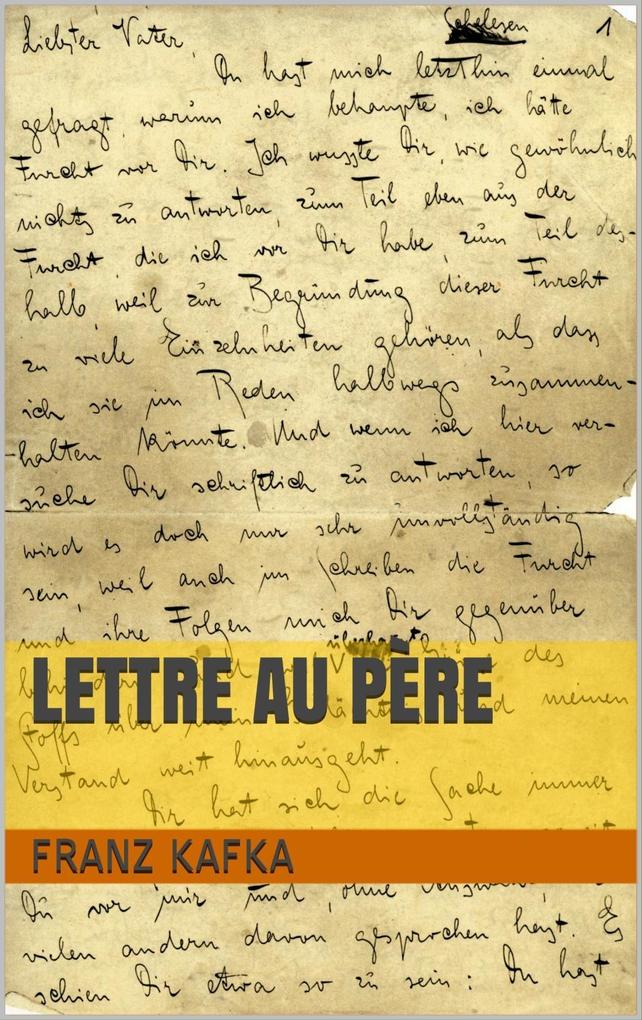 Schelesen 1
Liebster Vater,
Du hast mich letzthin einmal
gefragt, warum ich behaupte, ich hätte
Furcht vor Dir. Ich wusste Dir, wie gewöhnlich
nichts zu antworten, zum Teil eben aus der
Furcht, die ich vor Dir habe, zum Teil des-
halb, weil zur Begründung dieser Furcht
zu viele Einzelnheiten gehören, als dass
ich sie im Reden halbwegs zusammen-
halten könnte. Und wenn ich hier ver-
suche Dir schriftlich zu antworten, so
wird es doch nur sehr unvollständig
sein, weil auch im Schreiben die Furcht
und ihre Folgen mich Dir gegenüber
des
LETTRE AU PÈRE
Stoffs über meinen
Verstand weit hinausgeht.
Dir hat sich die Sache immer
FRANZ KAFKA
Du vor mir und, ohne
vielen andern davon gesprochen hast. Es
schien Dir etwa so zu sein: Du hast